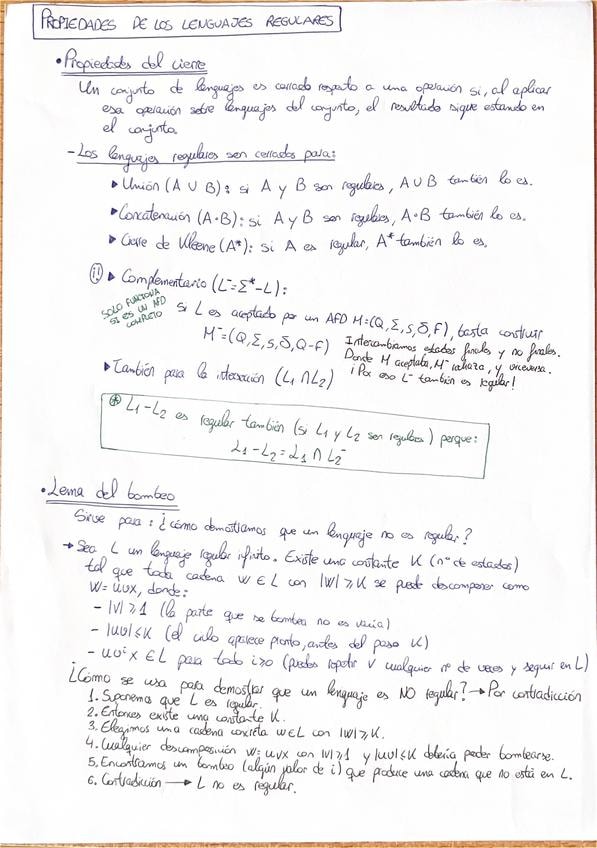 PROPIEDADES DE LOS LENGUAJES REGULARES
• Propiedades del cierre
Un conjunto de lenguajes es cerrado respecto a una operación si, al aplicar
esa operación sobre lenguajes del conjunto, el resultado sigue estando en
el conjunto.
- Los lenguajes regulares son cerrados para:
▶ Unión (A ∪ B): si A y B son regulares, A ∪ B también lo es.
▶ Concatenación (A·B): si A y B son regulares, A·B también lo es.
▶ Cierre de Kleene (A*): si A es regular, A* también lo es.
(¡!) ▶ Complementario (L⁻=Σ*-L):
SOLO FUNCIONA
SI ES UN AFD
COMPLETO
Si L es aceptado por un AFD M=(Q,Σ,s,δ,F), basta construir
M⁻=(Q,Σ,s,δ,Q-F)
Intercambiamos estados finales y no finales.
Donde M aceptaba, M⁻ rechaza, y viceversa.
¡Por eso L⁻ también es regular!
▶ También para la intersección (L₁ ∩ L₂)
⊛ L₁-L₂ es regular también (si L₁ y L₂ son regulares) porque:
L₁-L₂ = L₁ ∩ L₂⁻
• Lema del bombeo
Sirve para: ¿cómo demostramos que un lenguaje no es regular?
→ Sea L un lenguaje regular infinito. Existe una constante K (nº de estados)
tal que toda cadena w ∈ L con |w| ≥ K se puede descomponer como
w= uvx, donde:
- |v| ≥ 1 (la parte que se bombea no es vacía)
- |uv| ≤ K (el ciclo aparece pronto, antes del paso K)
- uvⁱx ∈ L para todo i≥0 (puedes repetir v cualquier nº de veces y seguir en L)
¿Cómo se usa para demostrar que un lenguaje es NO regular? → Por contradicción
1. Suponemos que L es regular.
2. Entonces existe una constante K.
3. Elegimos una cadena concreta w∈L con |w| ≥ K.
4. Cualquier descomposición w= uvx con |v| ≥ 1 y |uv| ≤ K debería poder bombearse.
5. Encontramos un bombeo (algún valor de i) que produce una cadena que no está en L.
6. Contradicción → L no es regular.